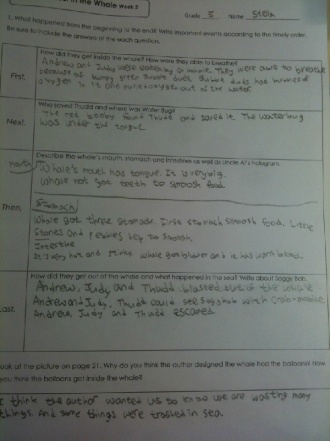 in the Whale Week 5
Grade 5 name Stella
1. What happened from the beginning to the end? Write important events according to the timely order.
Be sure to include the answers of the each question.
How did they get inside the whale? How were they able to breathe?
First,
Andrew and Judy were
They were able to breathe
because of
oxygen
out of the water
Who saved Thudd and where was Water Bug?
Next,
The red booby found Thudd and saved it. The waterbug
was under the tongue
Describe the whale's mouth, stomach and intestines as well as Uncle Al's hologram.
mouth
Whale's mouth has tongue. It is very big.
Whale not got teeth to smoosh food.
Then
Stomach
Whale got three stomach. First stomach smoosh food. Little
stones and help to smoosh.
Intestine
It is very hot and stinky. Whale got blubber and it has warm blood.
How did they get out of the whale and what happened in the sea? Write about Soggy Bob.
Last,
Andrew, Judy and Thudd blasted out of the whale.
Andrew and Judy, Thudd could see Soggy Bob with Crab-mobile
Andrew, Judy and Thudd escaped
Look at the picture on page 21. Why do you think the author designed the whale has the balloons? How
you think the balloons got inside the whale?
I think the author wanted us to know we are wasting many
things and some things were trashed in sea.